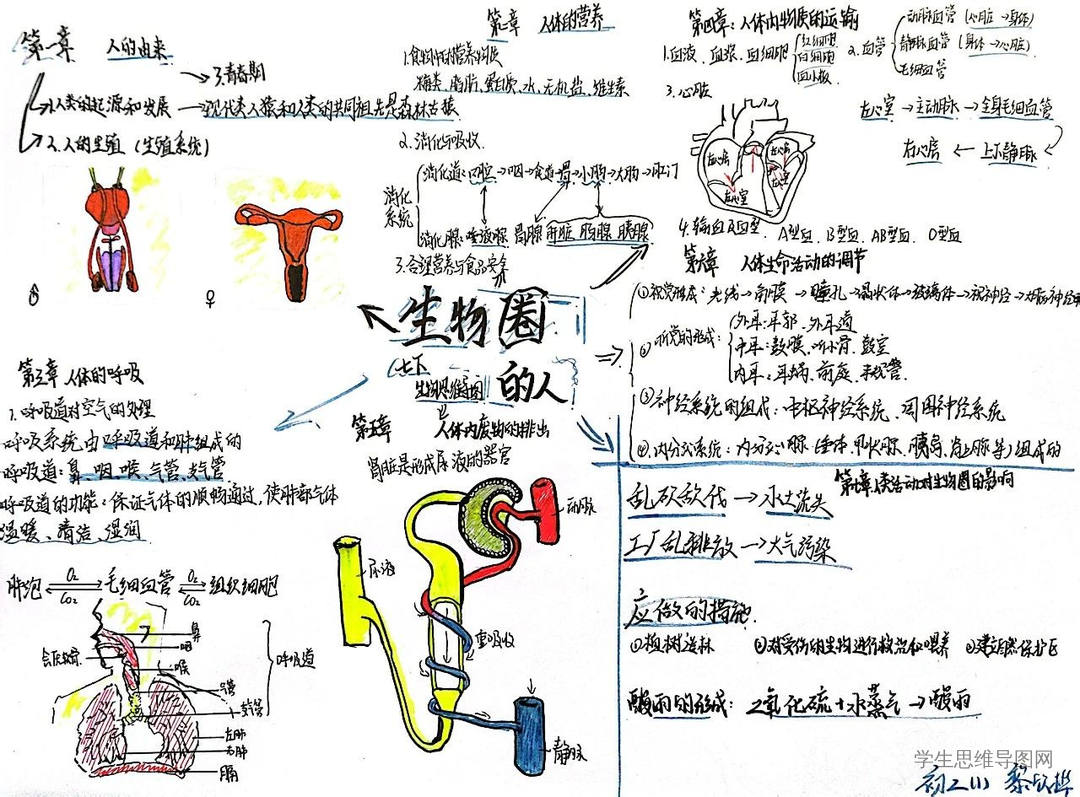 第一章 人的由来
3.青春期
1.人类的起源和发展 — 现代类人猿和人类的共同祖先是森林古猿
2.人的生殖 (生殖系统)
♂
♀
第二章 人体的营养
1.食物中的营养物质
糖类、脂肪、蛋白质、水、无机盐、维生素
2.消化与吸收
消化系统
消化道:口腔→咽→食道→胃→小肠→大肠→肛门
消化腺:唾液腺 胃腺 肝脏 肠腺 胰腺
3.合理营养与食品安全
第四章:人体内物质的运输
1.血液、血浆、血细胞
红细胞
白细胞
血小板
2.血管
动脉血管 (心脏→身体)
静脉血管 (身体→心脏)
毛细血管
3.心脏
左心室→主动脉→全身毛细血管
右心房←上下静脉
4.输血及血型. A型血、B型血、AB型血、O型血
第六章 人体生命活动的调节
①视觉形成:光线→角膜→瞳孔→晶状体→玻璃体→视神经→
②听觉的形成:
外耳:耳郭、外耳道
中耳:鼓膜、听小骨、鼓室
内耳:耳蜗、前庭、半规管.
③神经系统的组成:中枢神经系统、周围神经系统
生物圈
的人
七下
生物思维导图
第三章 人体的呼吸
1.呼吸道对空气的处理
呼吸系统由呼吸道和肺组成的
呼吸道:鼻、咽、喉、气管、支气管
呼吸道的功能:保证气体的顺畅通过,使肺部气体
温暖、清洁、湿润
肺泡 O₂ CO₂ 毛细血管 O₂ CO₂ 组织细胞
鼻
咽
喉
气管
支气管
左肺
右肺
膈
呼吸道
第五章 人体内废物的排出
肾脏是形成尿液的器官
动脉
尿液
重吸收
静脉
乱砍砍伐→水土流失
工厂乱排放→大气污染
应做的措施
①植树造林 ②对受伤的生物进行救治和喂养 ③建自然保护区
酸雨的形成: 二氧化硫+水蒸气→酸雨
学生思维导图网